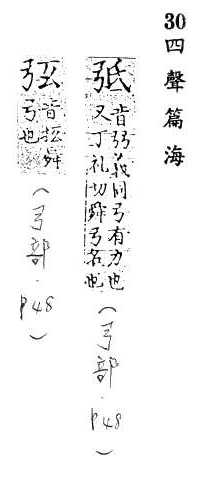 30 四聲篇海
弤
音 義同弓有力也
又丁礼切舜弓名也
(弓部.p48)
音 舜
弓也
(弓部.p48)